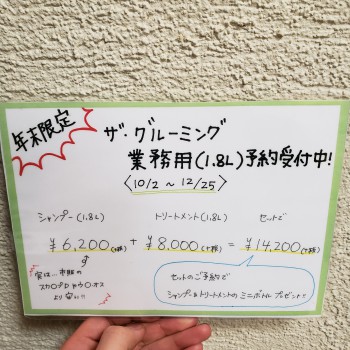 年末限定
ザ・グルーミング
業務用(1.8L)予約受付中!
〈10/2 〜 12/25〉
シャンプー(1.8L) トリートメント(1.8L) セットで
¥6,200(税抜) + ¥8,000(税抜) = ¥14,200(税抜)
実は…市販の
スカ〇プD やウ〇オス
より
セットのご予約で
シャンプー&トリートメントの ミニボトル プレゼント